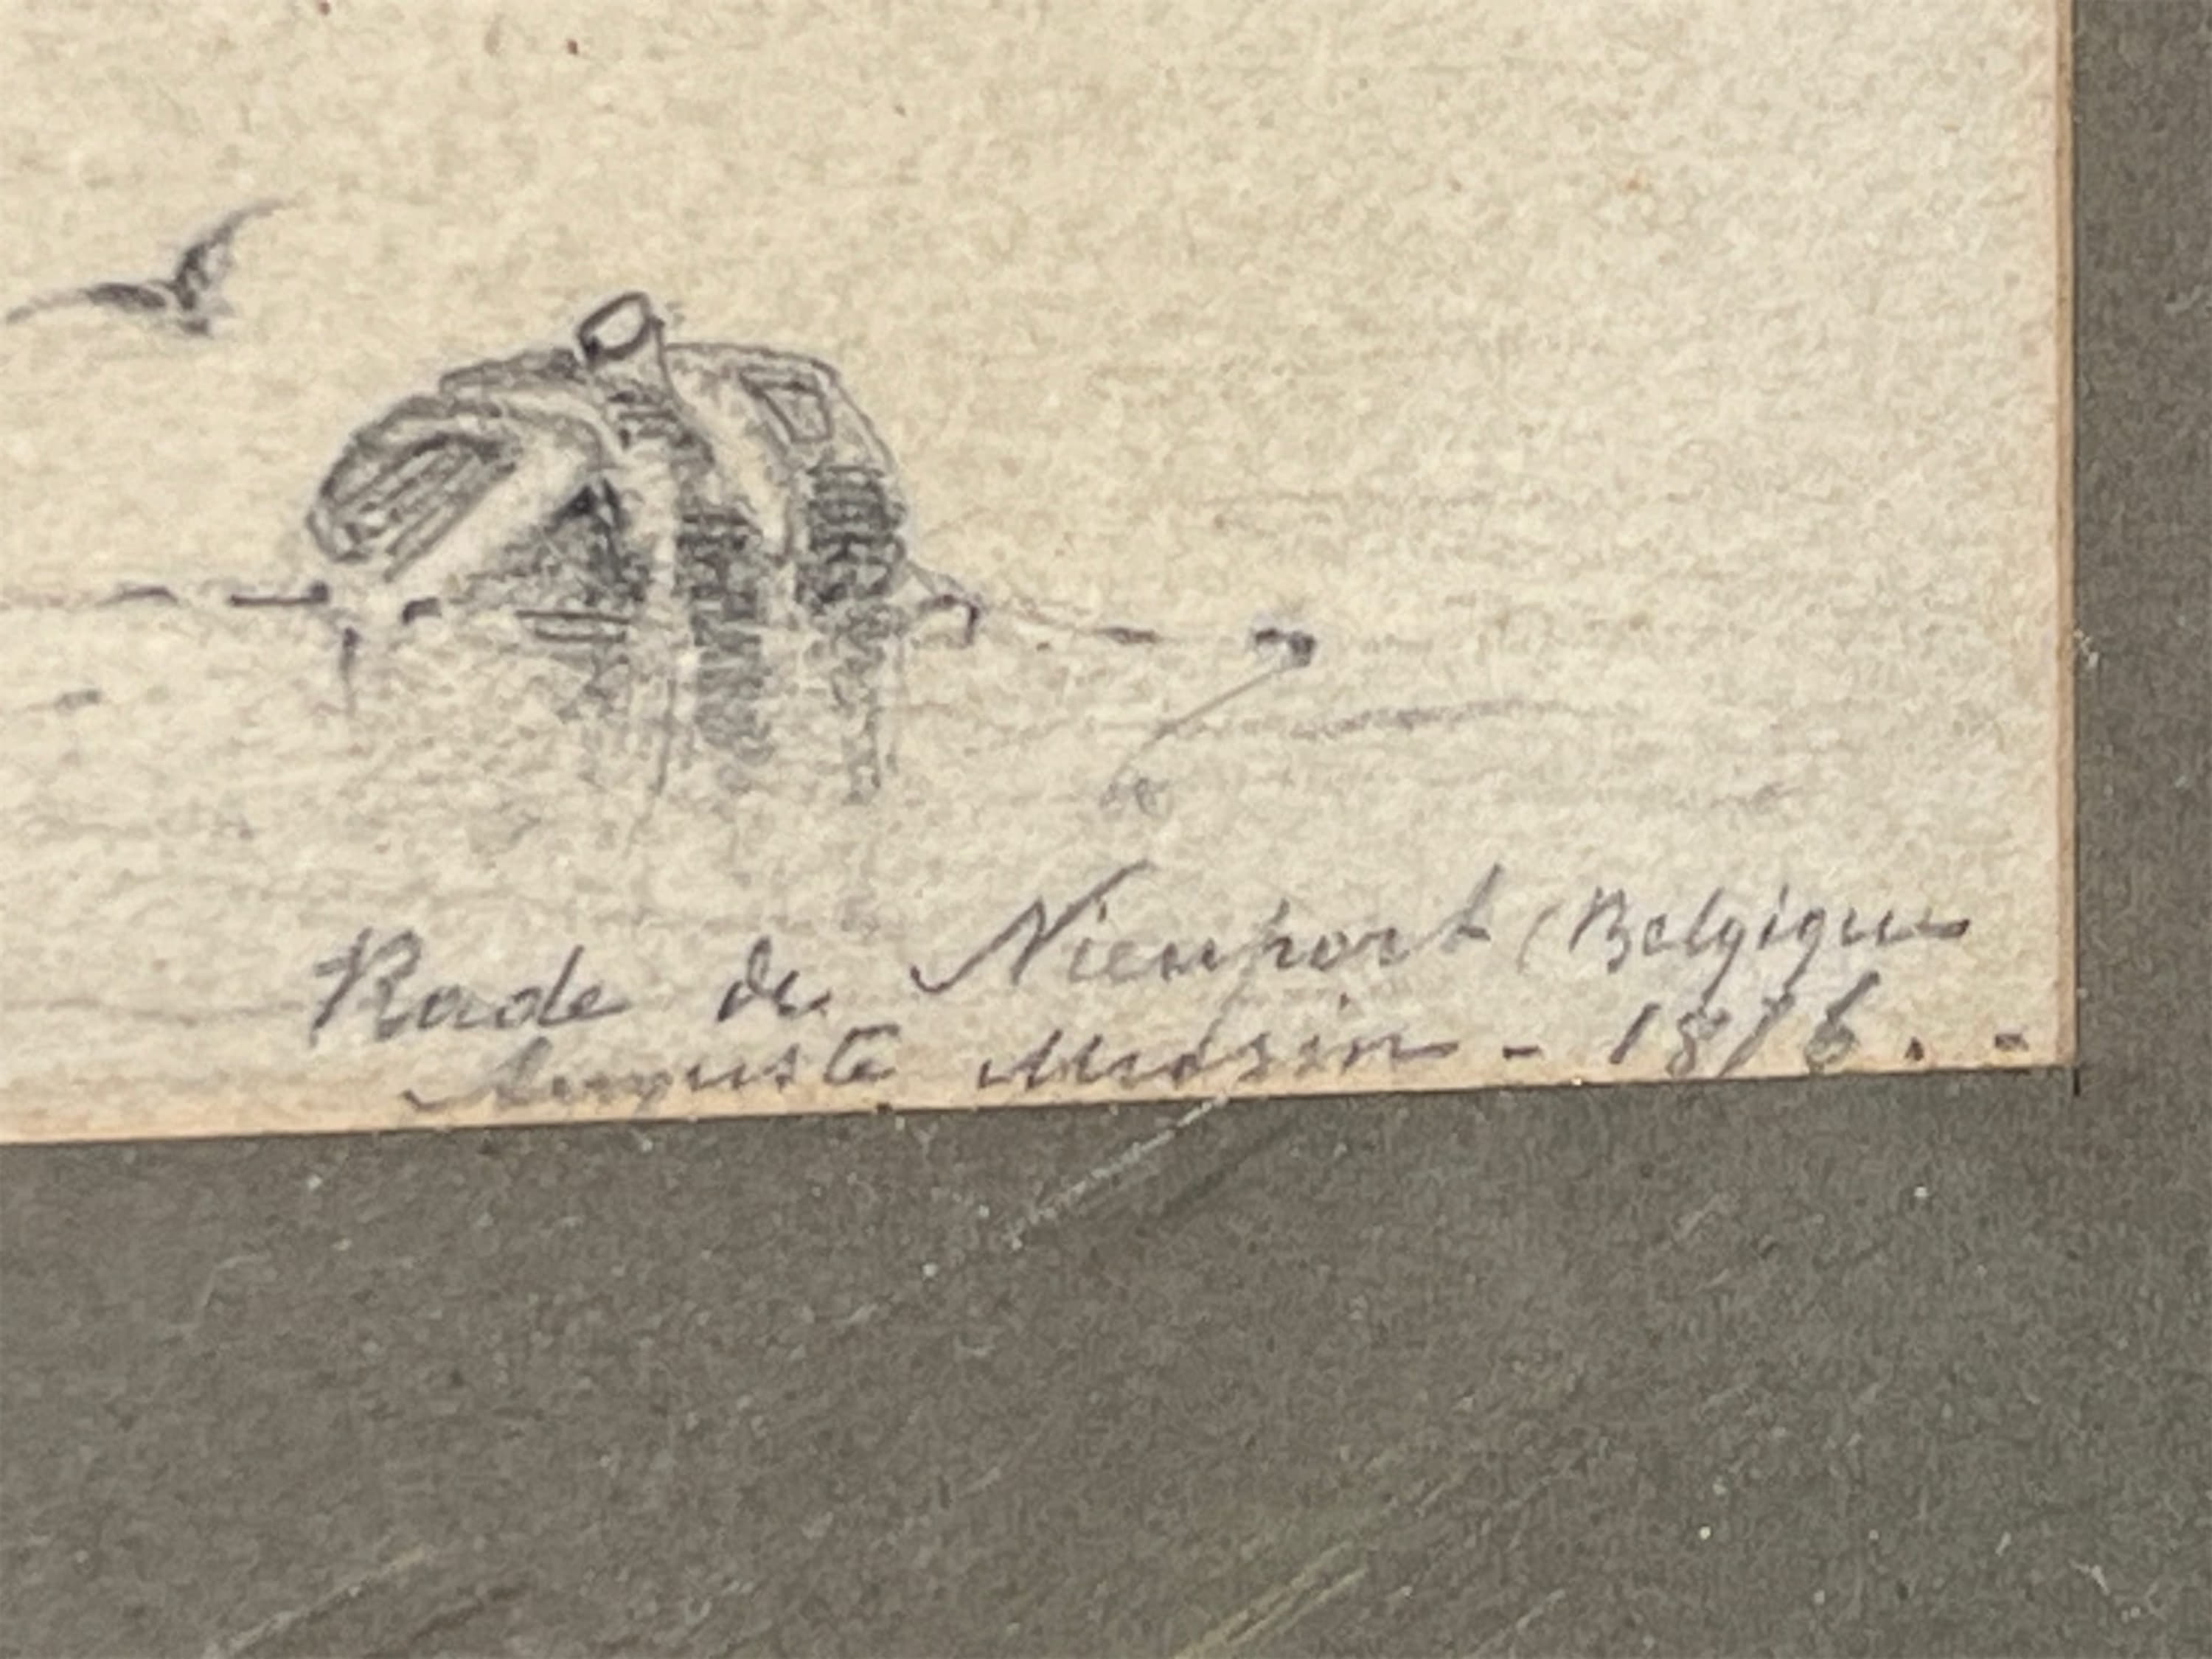 Rade de Nieuport (Belgique
Auguste Musin - 1876. -